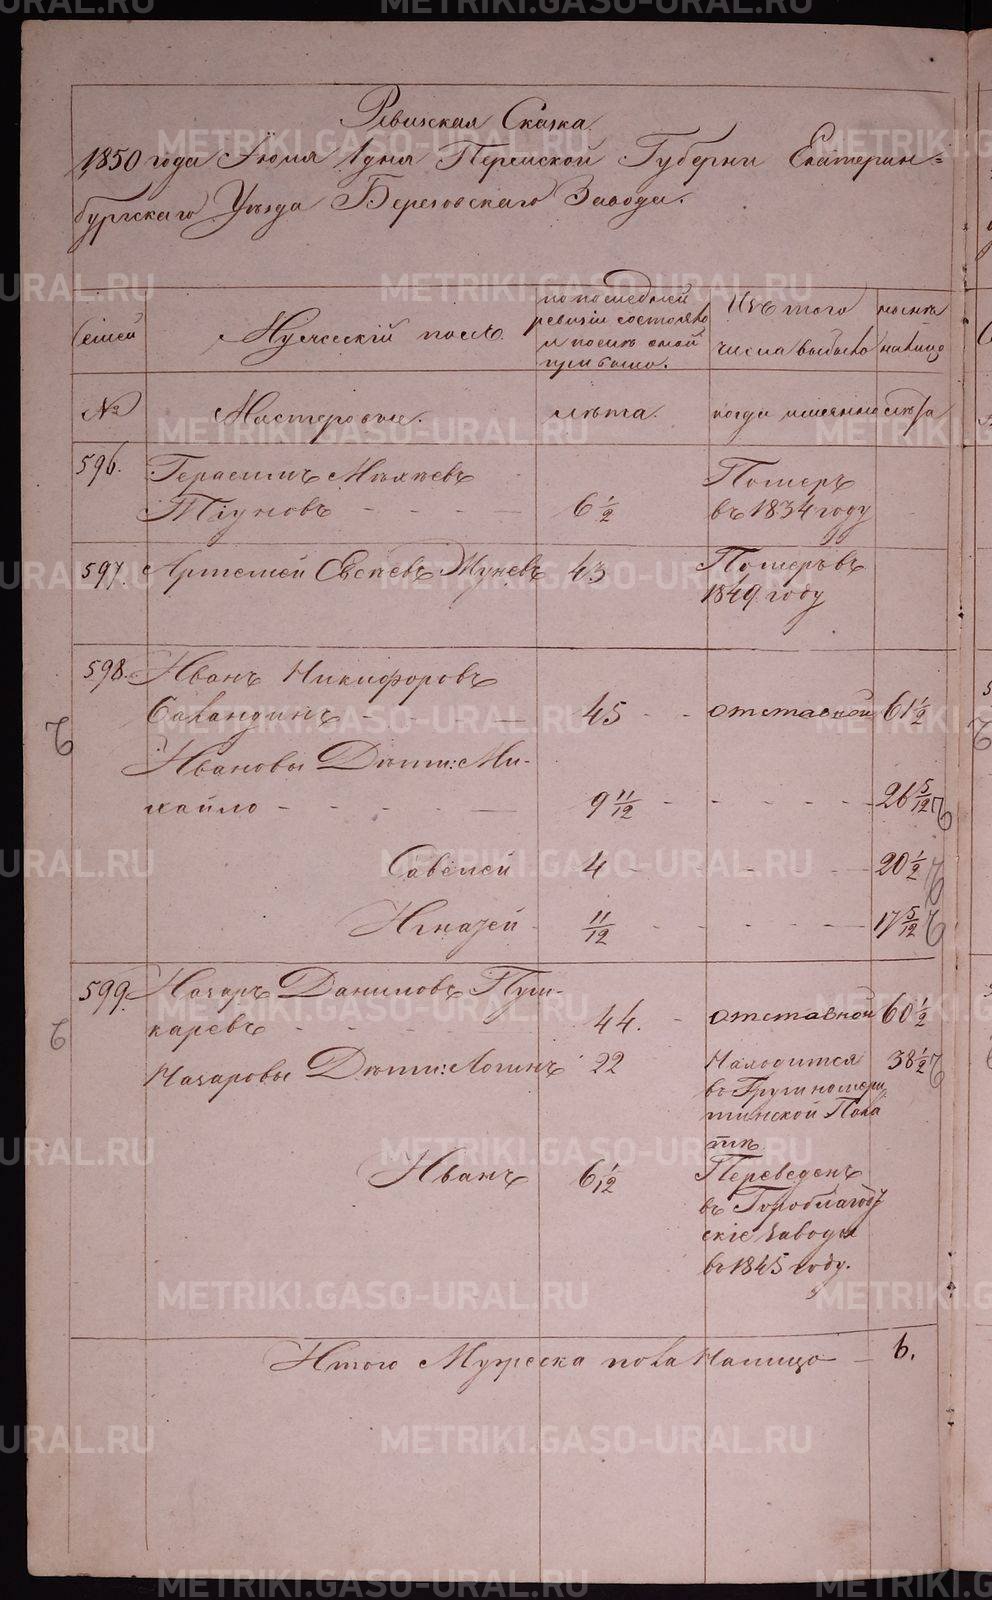 Ревизская Сказка
1850 года Іюня 1 дня Пермской Губерни Екатерин=
бургскаго Уѣзда Березовскаго Завода.
Семей
Мужескій полъ
по последней
ревизіи состояло
и послѣ оной
прибыло.
Изъ того
числа выбыло
нынѣ
налицо
№
Мастеровые.
лѣта.
когда именно
лѣта
596.
Герасимъ
Тіуновъ
6 1/2
Померъ
въ 1834 году
597.
Артемей Евсѣевъ Жуневъ
43
Померъ въ
1849 году
598.
Иванъ Никифоровъ
Саландинъ
45
отставной
61 1/2
Ивановы Дѣти: Ми-
хайло
9 11/12
26 5/12
Савелей
4
20 1/2
Игнатей
11/12
17 5/12
599.
Назаръ Даниловъ Пуш-
каревъ
44.
отставной
60 1/2
Назаровы Дѣти: Логинъ
22
Находится
38 1/2
въ
тинской Пала
тѣ
Иванъ
6 1/2
Переведенъ
въ Гороблагод
скіе заводы
въ 1845 году.
Итого Мужеска пола Налицо
6.
METRIKI.GASO-URAL.RU